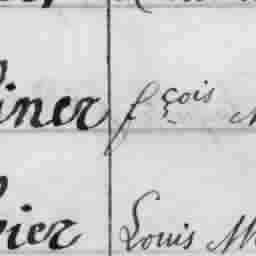 iner fçois
vier Louis M